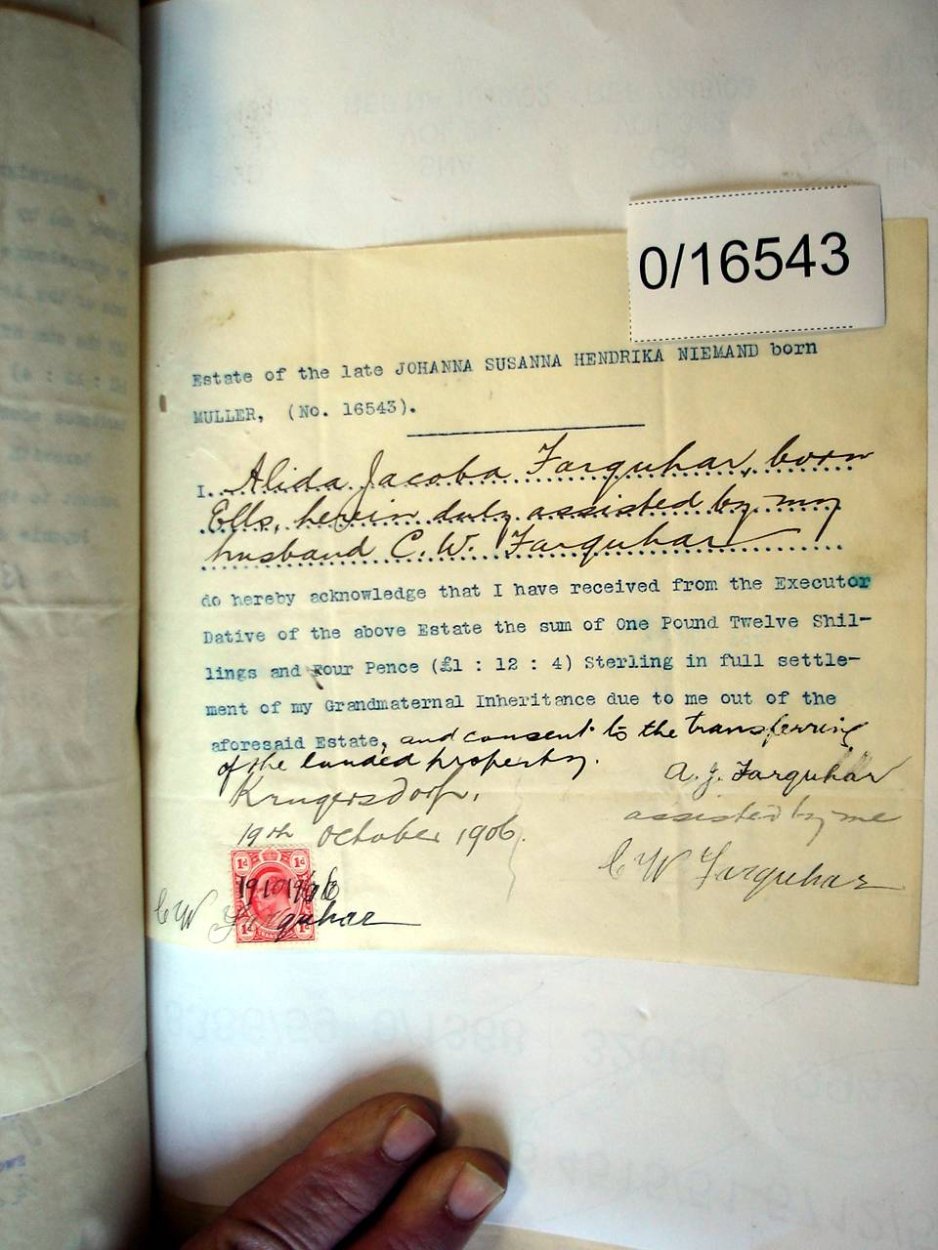 0/16543
Estate of the late JOHANNA SUSANNA HENDRIKA NIEMAND born
MULLER, (No. 16543).
I. Alida Jacoba Farquhar, born
Ells, herein duly assisted by my
husband C. W. Farquhar
do hereby acknowledge that I have received from the Executor
Dative of the above Estate the sum of One Pound Twelve Shil-
lings and Four Pence (£1 : 12 : 4) Sterling in full settle-
ment of my Grandmaternal Inheritance due to me out of the
aforesaid Estate, and consent to the transferring
of the landed property.
Krugersdorp,
19th October 1906
A. J. Farquhar
assisted by me
C W Farquhar
1d 1d
19 10 1906
C W Farquhar
1d 1d